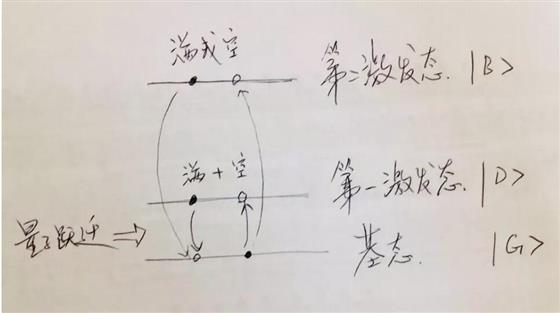 满或空
第二激发态. |B>
满+空
第一激发态. |D>
量子跃迁 ⇒
基态. |G>